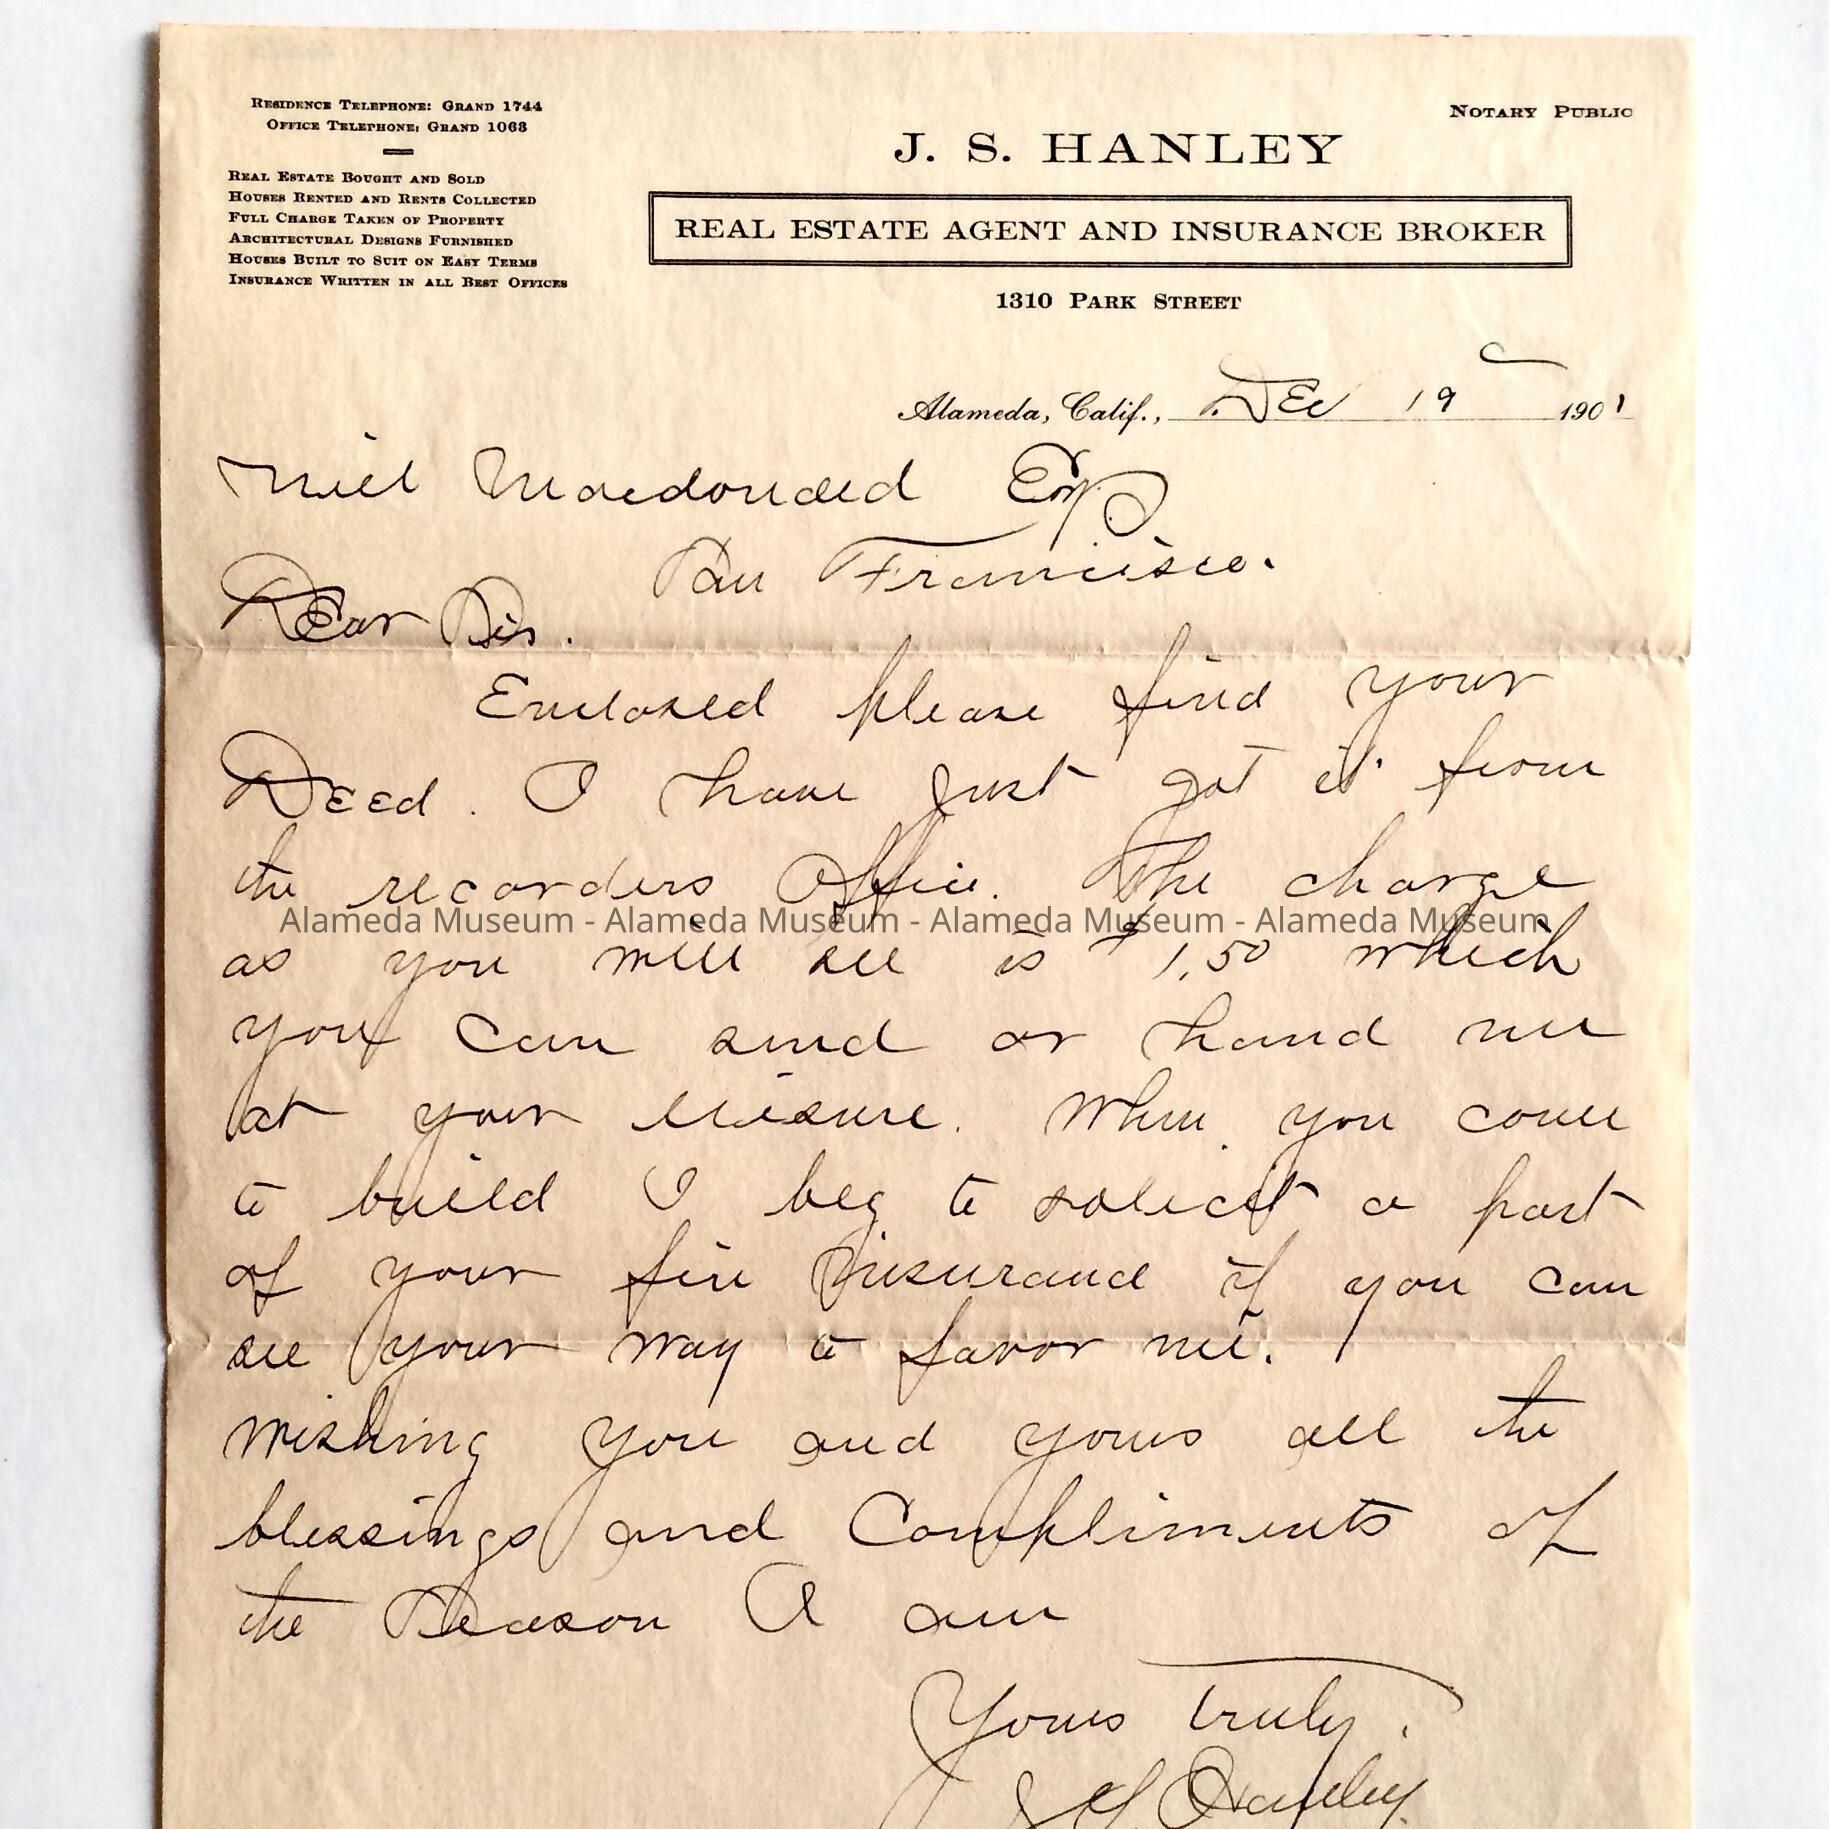 RESIDENCE TELEPHONE: GRAND 1744
OFFICE TELEPHONE: GRAND 1063
REAL ESTATE BOUGHT AND SOLD
HOUSES RENTED AND RENTS COLLECTED
FULL CHARGE TAKEN OF PROPERTY
ARCHITECTURAL DESIGNS FURNISHED
HOUSES BUILT TO SUIT ON EASY TERMS
INSURANCE WRITTEN IN ALL BEST OFFICES
NOTARY PUBLIC
J. S. HANLEY
REAL ESTATE AGENT AND INSURANCE BROKER
1310 PARK STREET
Alameda, Calif., Dec 19 1901
Macdonald Esq
San Francisco.
Dear Sir.
Enclosed please find your
Deed. I have just got it from
the recorders Office. The charge
Alameda Museum - Alameda Museum - Alameda Museum - Alameda Museum
as you will see is $1.50 which
you can send or hand me
at your leisure. When you come
to build I beg to solicit a part
of your fire Insurance if you can
see your way to favor me.
Wishing you and yours all the
blessings and Compliments of
the Season I am
Yours Truly.
J S Hanley.